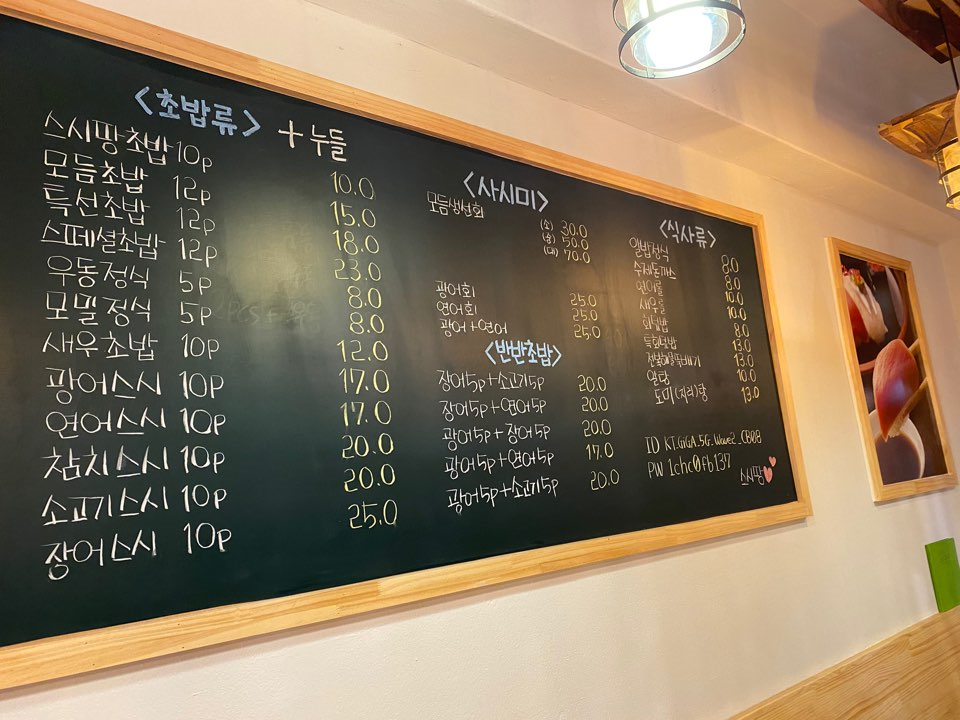 <초밥류> + 누들
스시팡초밥 10p 10.0
모듬초밥 12p 15.0
특선초밥 12p 18.0
스페셜초밥 12p 23.0
우동정식 5p 8.0
모밀정식 5p 8.0
새우초밥 10p 12.0
광어스시 10p 17.0
연어스시 10p 17.0
참치스시 10p 20.0
소고기스시 10p 20.0
장어스시 10p 25.0
<사시미>
모듬생선회
(소) 30.0
(중) 50.0
(대) 70.0
광어회 25.0
연어회 25.0
광어+연어 25.0
<반반초밥>
장어5p+소고기5p 20.0
장어5p+연어5p 20.0
광어5p+장어5p 20.0
광어5p+연어5p 17.0
광어5p+소고기5p 20.0
<식사류>
알밥정식 8.0
수제돈까스 8.0
연어롤 10.0
새우롤 10.0
회덮밥 8.0
특회덮밥 13.0
전복해물뚝배기 13.0
알탕 10.0
도미(지리)탕 13.0
ID KT_GiGA_5G_Wave2_CB08
PW 1chc0fb137
스시팡